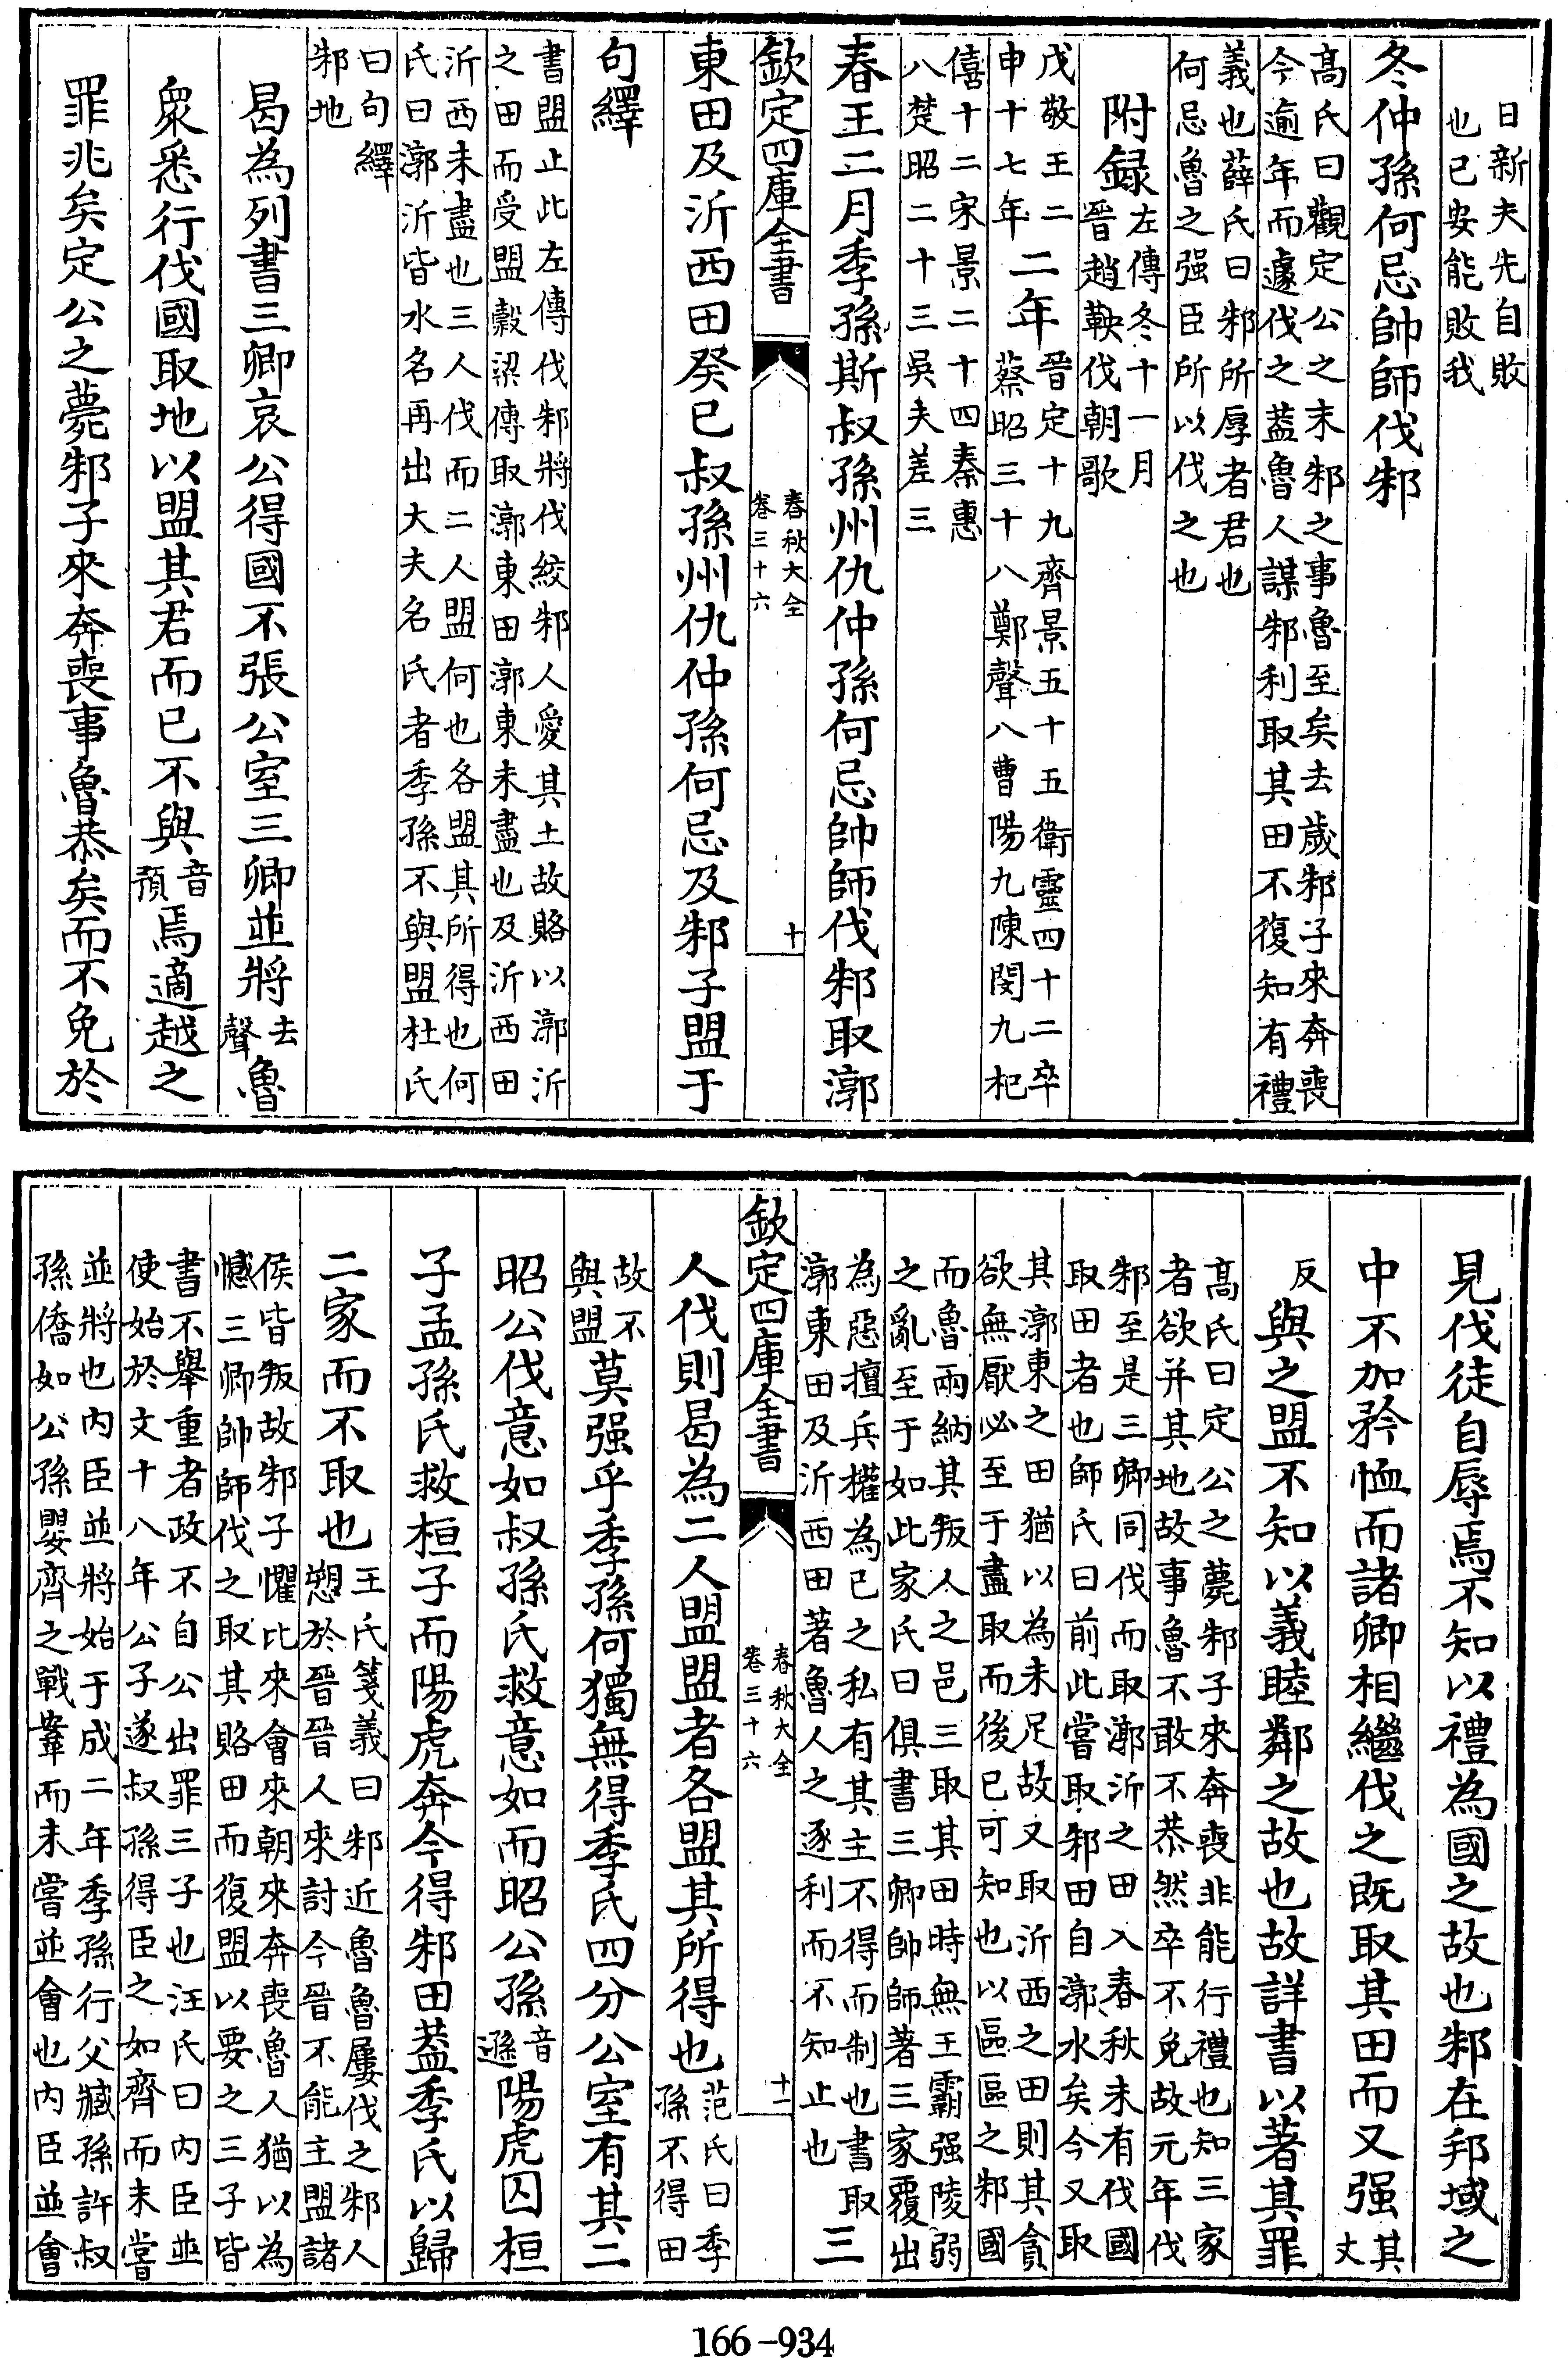 日新夫先自敗
也已安能敗我
冬仲孫何忌帥師伐邾
高氏曰觀定公之末邾之事魯至矣去歲邾子來奔喪
今逾年而遽伐之蓋魯人謀邾利取其田不復知有禮
義也薛氏曰邾所厚者君也
何忌魯之强臣所以伐之也
附録左傳冬十一月
晉趙鞅伐朝歌
戊敬王二
申十七年
二年
晉定十九齊景五十五衛靈四十二卒
蔡昭三十八鄭聲八曹陽九陳閔九杞
僖十二宋景二十四秦惠
八楚昭二十三吳夫差三
春王二月季孫斯叔孫州仇仲孫何忌帥師伐邾取漷
欽定四庫全書
春秋大全
卷三十六
十
東田及沂西田癸巳叔孫州仇仲孫何忌及邾子盟于
句繹
書盟止此左傳伐邾將伐絞邾人愛其土故賂以漷沂
之田而受盟穀梁傳取漷東田漷東未盡也及沂西田
沂西未盡也三人伐而二人盟何也各盟其所得也何
氏曰漷沂皆水名再出大夫名氏者季孫不與盟杜氏
曰句繹
邾地
曷為列書三卿哀公得國不張公室三卿並將去聲魯
衆悉行伐國取地以盟其君而已不與音預焉適越之
罪兆矣定公之薨邾子來奔喪事魯恭矣而不免於
見伐徒自辱焉不知以禮為國之故也邾在邦域之
中不加矜恤而諸卿相繼伐之既取其田而又强其丈
反與之盟不知以義睦鄰之故也故詳書以著其罪
高氏曰定公之薨邾子來奔喪非能行禮也知三家
者欲并其地故事魯不敢不恭然卒不免故元年伐
邾至是三卿同伐而取漷沂之田入春秋未有伐國
取田者也師氏曰前此嘗取邾田自漷水矣今又取
其漷東之田猶以為未足故又取沂西之田則其貪
欲無厭必至于盡取而後已可知也以區區之邾國
而魯兩納其叛人之邑三取其田時無王霸强陵弱
之亂至于如此家氏曰俱書三卿帥師著三家覆出
為惡擅兵權為己之私有其主不得而制也書取
漷東田及沂西田著魯人之逐利而不知止也
三
欽定四庫全書
春秋大全
卷三十六
十一
人伐則曷為二人盟盟者各盟其所得也范氏曰季
孫不得田
故不
與盟莫强乎季孫何獨無得季氏四分公室有其二
昭公伐意如叔孫氏救意如而昭公孫音遜陽虎囚桓
子孟孫氏救桓子而陽虎奔今得邾田蓋季氏以歸
二家而不取也王氏箋義曰邾近魯魯屢伐之邾人
愬於晉晉人來討今晉不能主盟諸
侯皆叛故邾子懼比來會來朝來奔喪魯人猶以為
憾三卿帥師伐之取其賂田而復盟以要之三子皆
書不舉重者政不自公出罪三子也汪氏曰內臣並
使始於文十八年公子遂叔孫得臣之如齊而未嘗
並將也內臣並將始于成二年季孫行父臧孫許叔
孫僑如公孫嬰齊之戰鞌而未嘗並會也內臣並會
166-934